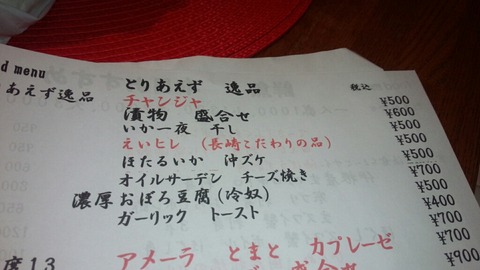 d menu
とりあえず 逸品 税込
あえず逸品
チャンジャ ¥500
漬物 盛合せ ¥600
いか一夜 干し ¥500
えいヒレ (長崎こだわりの品) ¥500
ほたるいか 沖ズケ ¥500
オイルサーデン チーズ焼き ¥700
濃厚おぼろ豆腐(冷奴) ¥500
ガーリック トースト ¥400
¥700
¥700
度13 アメーラ とまと カプレーゼ ¥900
盛合せ